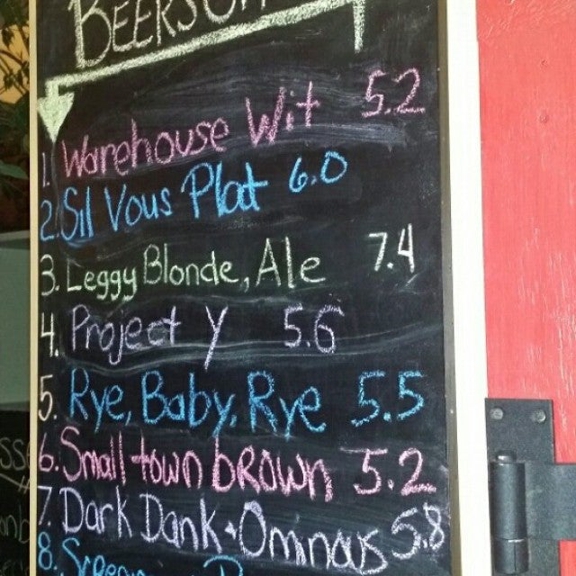 BEERS
1. Warehouse Wit 5.2
2. Sil Vous Plat 6.0
3. Leggy Blonde, Ale 7.4
4. Project Y 5.6
5. Rye, Baby, Rye 5.5
6. Small town brown 5.2
7. Dark Dank + Ominous 5.8
8.